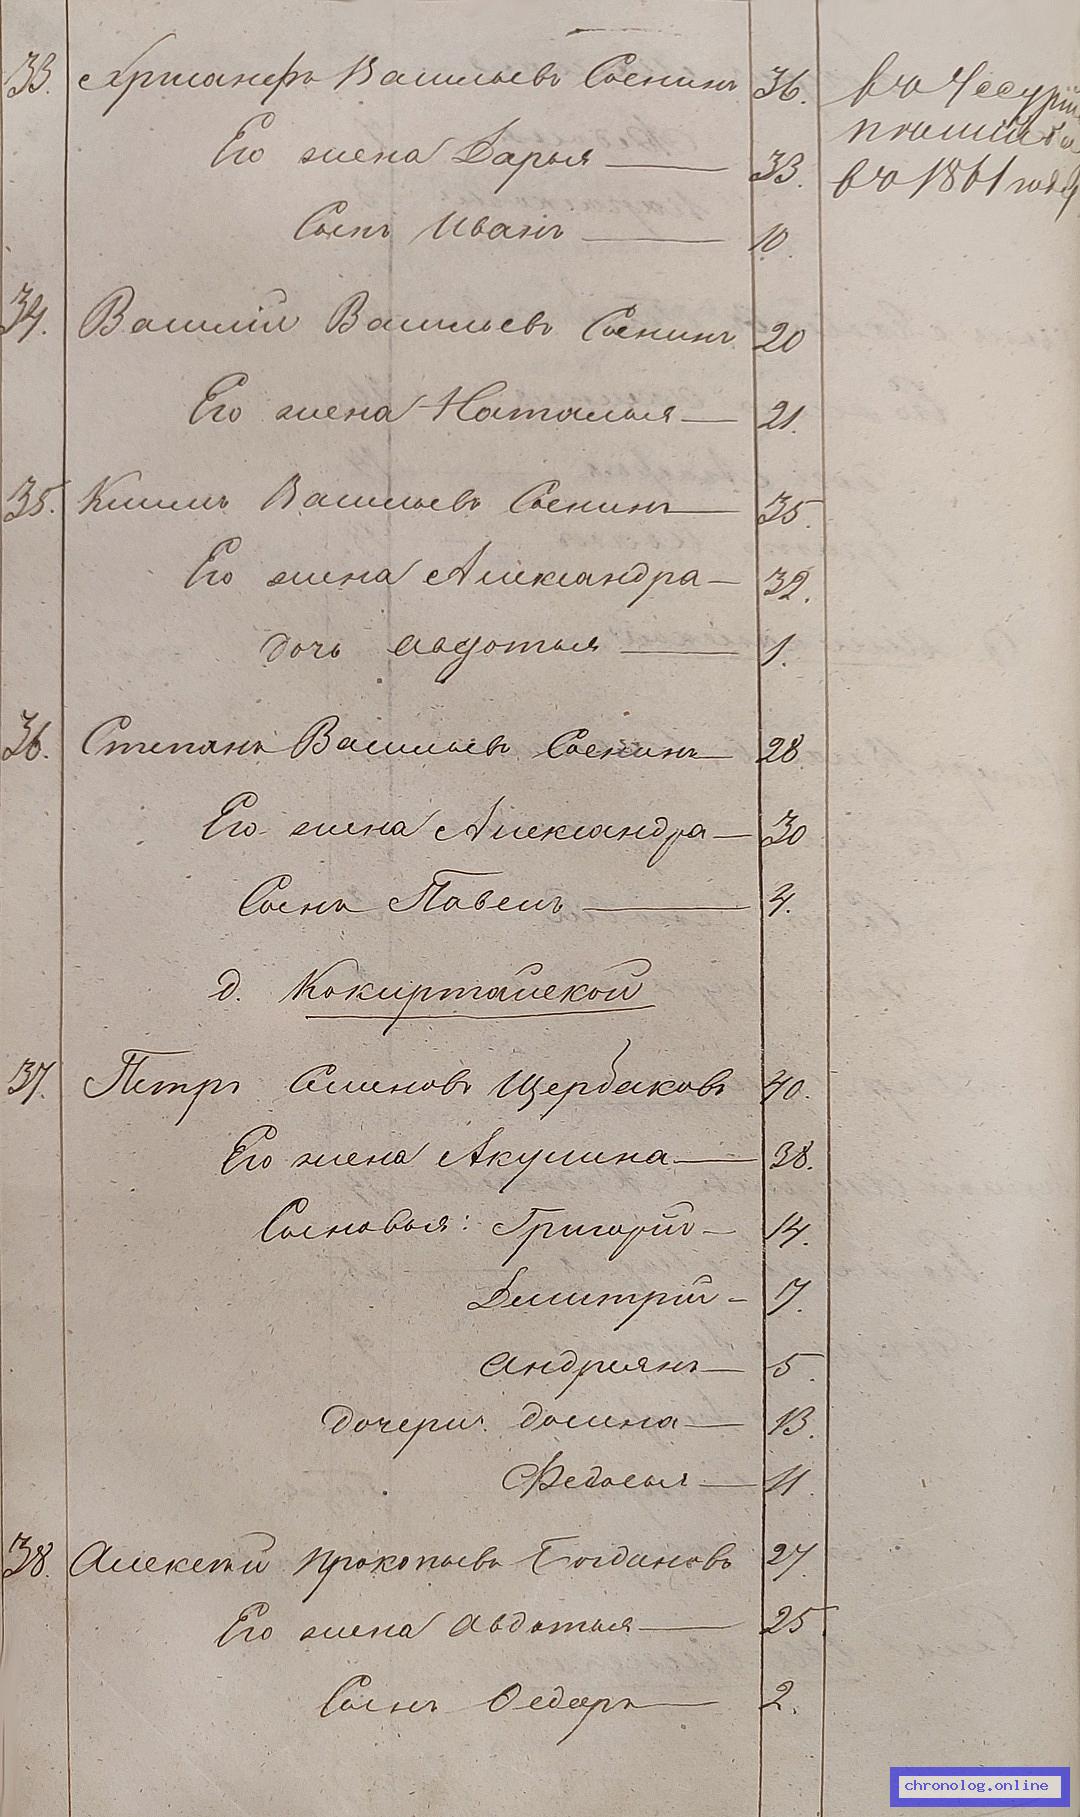 33. Хрисанфъ Васильевъ Соснинъ 36.
Его жена Дарья 33.
Сынъ Иванъ 10.
34. Василій Васильевъ Соснинъ 20
Его жена Наталья 21.
35. Киилъ Васильевъ Соснинъ 35.
Его жена Александра 32.
дочь Авдотья 1.
36. Степанъ Васильевъ Соснинъ 28
Его жена Александра 30
Сынъ Павелъ 4.
д. Кокиртайской
37. Петръ Семеновъ Щербаковъ 40.
Его жена Акулина 38.
Сыновья: Григорій 14.
Димитрій 7.
Андреянъ 5.
дочери: Домна 13.
Федосья 11.
38. Алексѣй Прокопьевъ Богдановъ 27.
Его жена Авдотья 25
Сынъ Ѳедоръ 2.
въ
въ 1861 году
chronolog.online